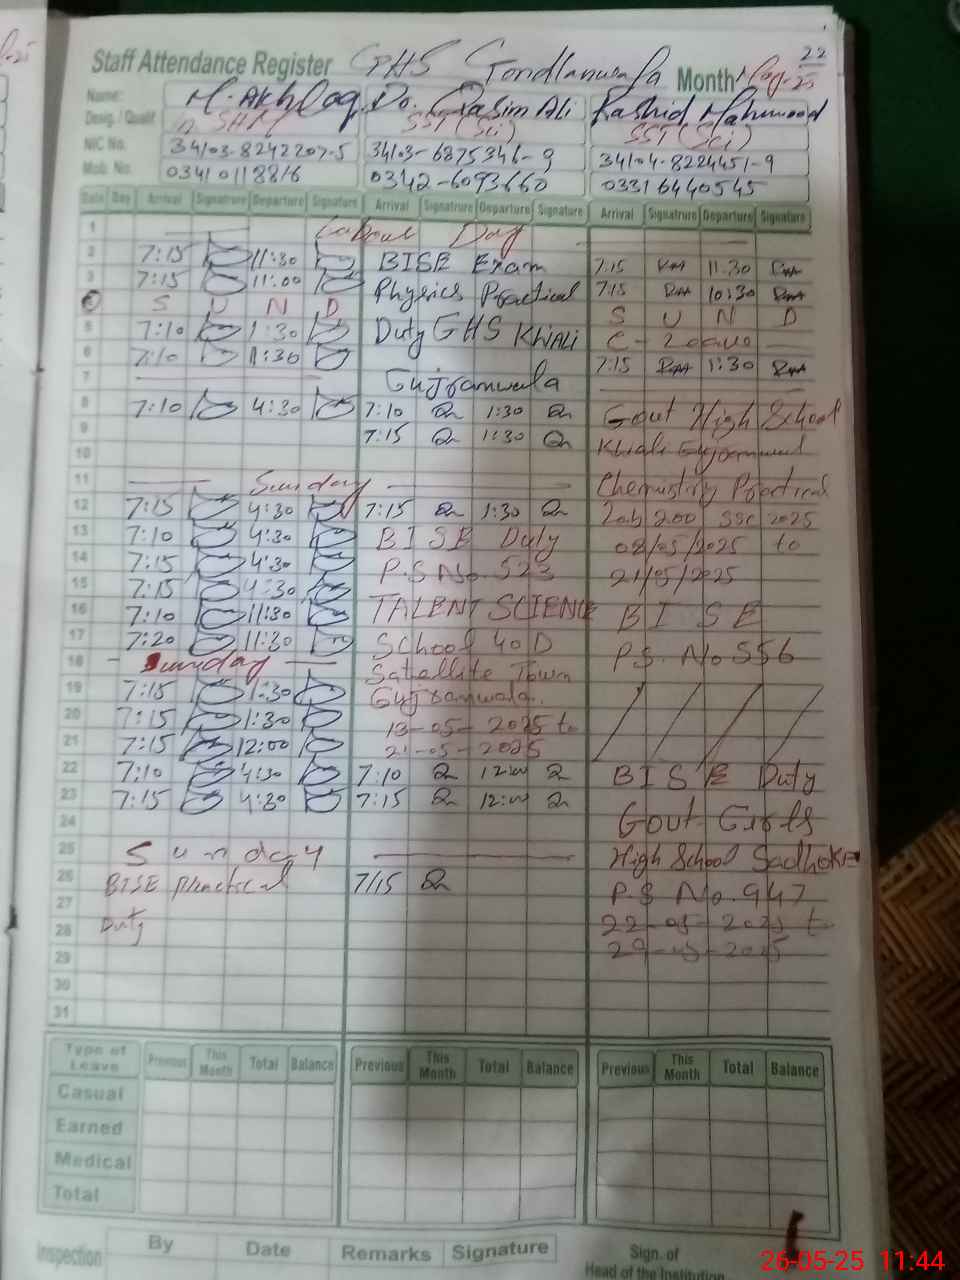 22
Staff Attendance Register GHS Gondlanwala Month May-25
Name: M. Akhlaq Do. Qasim Ali Rashid Mahmood
Desig. / Qualif SST (Sci) SST (Sci)
NIC No. 34103-8242207-5 34103-6875346-9 34104-8224451-9
Mob. No. 03410118816 0342-6093660 03316440545
Date Day Arrival Signatrure Departure Signature Arrival Signatrure Departure Signature Arrival Signatrure Departure Signature
1 Labour Day
2 7:15 11:30 BISE Exam 7:15 11:30
3 7:15 11:00 Physics Practical 7:15 10:30
S U N D S U N D
5 7:10 1:30 Duty GHS Khiali C-Leave
6 7:10 11:30 7:15 1:30
7 Gujranwala
8 7:10 4:30 7:10 1:30 Govt High School
9 7:15 1:30 Khiali Gujranwala
10
11 Sunday Chemistry Practical
12 7:15 4:30 7:15 1:30 Lab SSC 2025
13 7:10 4:30 BISE Duty 08/05/2025 to
14 7:15 4:30 P.S No. 523 21/05/2025
15 7:15 4:30
16 7:10 11:30 TALENT SCIENCE BISE
17 7:20 11:30 School 40 D P.S. No 556
18 Sunday Satellite Town
19 7:15 1:30 Gujranwala.
20 7:15 1:30 13-05-2025 to
21 7:15 12:00 21-05-2025
22 7:10 4:30 7:10 12:00 BISE Duty
23 7:15 4:30 7:15 12:00
24 Govt. Girls
25 Sunday High School Sadhoke
26 BISE Practical 7/15 P.S No. 947
27
28 Duty 22-05-2025 t
29 29-05-2025
30
31
Type of Leave Previous This Month Total Balance Previous This Month Total Balance Previous This Month Total Balance
Casual
Earned
Medical
Total
Inspection By Date Remarks Signature Sign. of
Head of the Institution
26-05-25 11:44